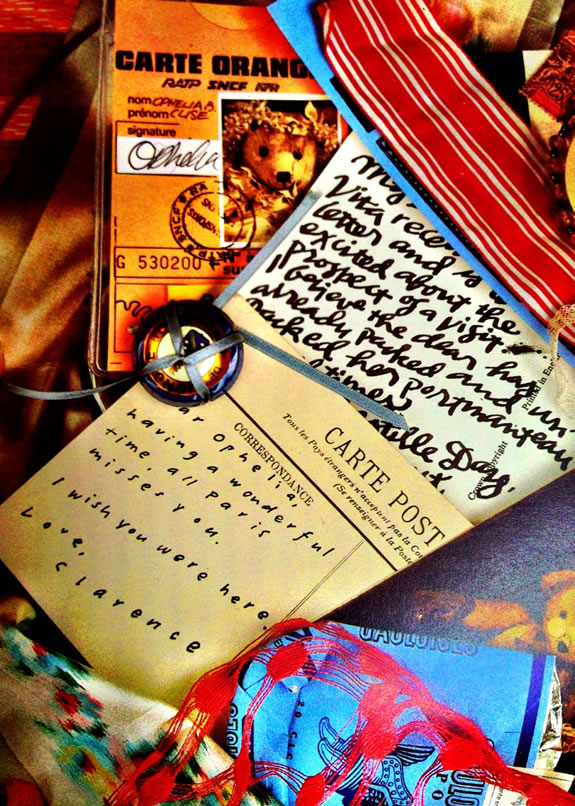 CARTE ORANG
RATP SNCF
nom OPHELIA B.
prénom CLISE
signature
Ophelia
G 530200
My
Vita recei
letter and is
excited about the
prospect of a visit...
I believe the dear has
already packed and un-
packed her portmanteau
times
Day,
Printed in En
Crown Copyright
CARTE POST
Tous les Pays étrangers n'acceptent pas la Co
(Se renseigner à la Poste
CORRESPONDANCE
ar Ophelia,
having a wonderful
time. all Paris
misses you.
I wish you were here.
Love,
Clarence
GAULOISES
20